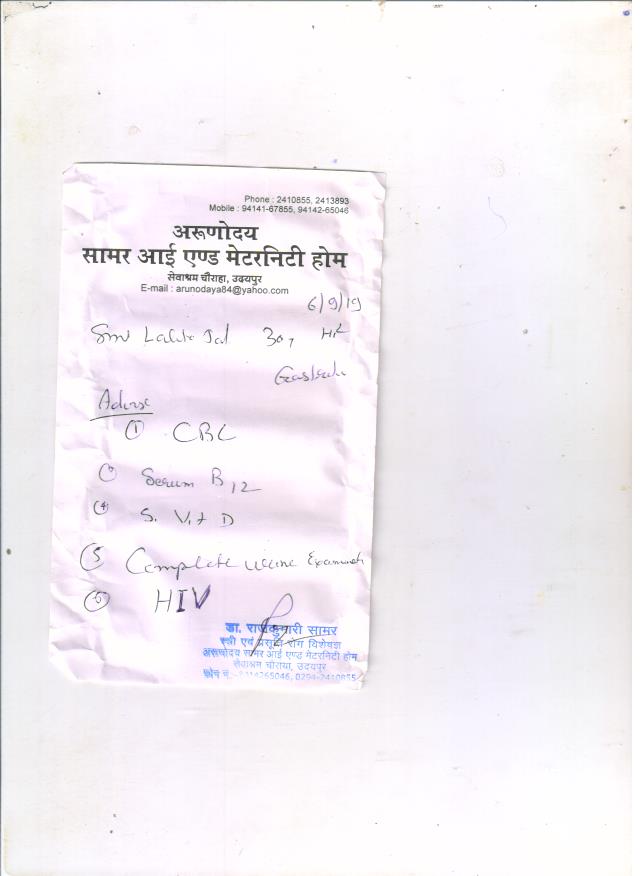 Phone : 2410855, 2413893
Mobile : 94141-67855, 94142-65046
अरूणोदय
सामर आई एण्ड मेटरनिटी होम
सेवाश्रम चौराहा, उदयपुर
E-mail : arunodaya84@yahoo.com
6/9/19
Smt
Advise
① CBC
Serum B12
④ S. Vit D
⑤ Complete urine
⑥ HIV
डा. राजकुमारी सामर
स्त्री एवं प्रसूति रोग विशेषज्ञ
अरूणोदय सामर आई एण्ड मेटरनिटी होम
सेवाश्रम चौराया, उदयपुर
फोन नं. 0294-2410855